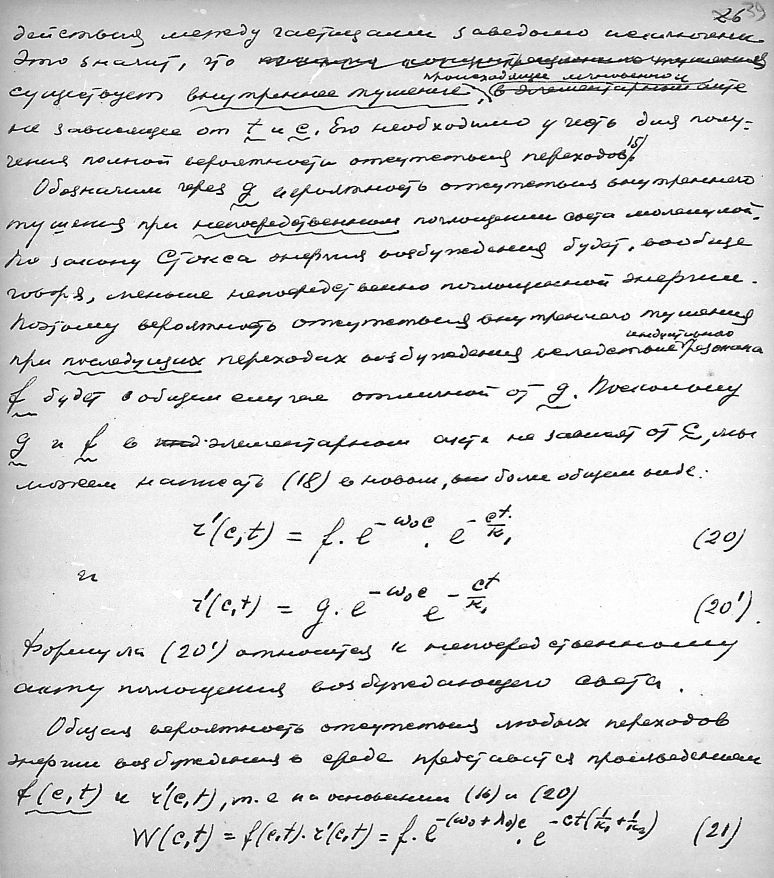 26 39
действия между частицами заведомо исключены.
Это значит, что
происходящее мгновенно и
существует внутреннее тушение, в элементарном акте
не зависящее от t и c. Его необходимо учесть для полу-
чения полной вероятности отсутствия переходов 15)
Обозначим через g вероятность отсутствия внутреннего
тушения при непосредственном поглощении света молекулой.
По закону Стокса энергия возбуждения будет, вообще
говоря, меньше непосредственно поглощенной энергии.
Поэтому вероятность отсутствия внутреннего тушения
индукционного
при последующих переходах возбуждения вследствие резонанса
f будет в общем случае отличной от g. Поскольку
g и f в элементарном акте не зависят от c, мы
можем написать (18) в новом, более общем виде:
r'(c,t) = f · e^{-ω₀c} · e^{-ct/κ₁} (20)
и
r'(c,t) = g · e^{-ω₀c} e^{-ct/κ₁} (20').
Формула (20') относится к непосредственному
акту поглощения возбуждающего света.
Общая вероятность отсутствия любых переходов
энергии возбуждения в среде представится произведением
f(c,t) и r'(c,t), т.е на основании (16) и (20)
W(c,t) = f(c,t) · r'(c,t) = f · e^{-(ω₀+λ₀)c} · e^{-ct(1/κ₁+1/κ₂)} (21)